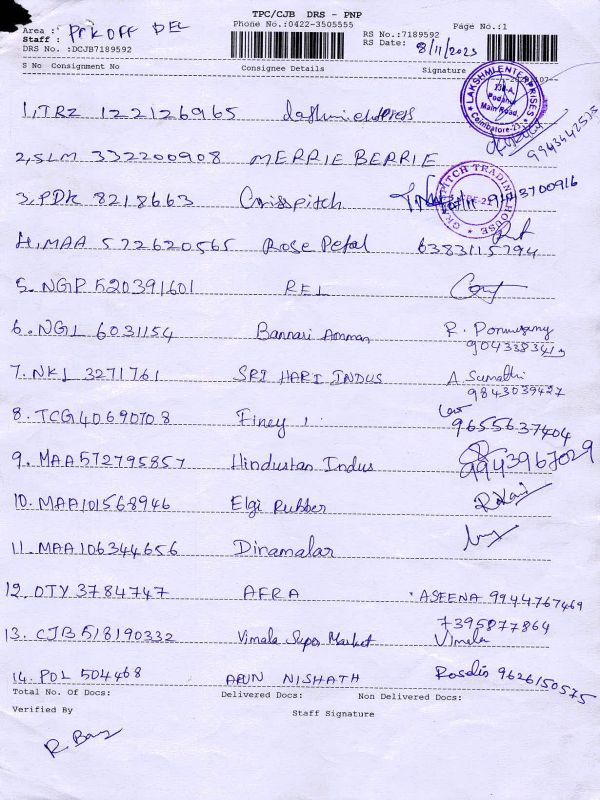 TPC/CJB DRS - PNP
Area : PNK OFF DEL Phone No.:0422-3505555 RS No.:7189592 Page No.:1
Staff :
DRS No. :DCJB7189592 RS Date: 8/11/2025
S No Consignment No Consignee Details Signature
LAKSHMI ENTERPRISES
Podanur Main Road,
Coimbatore-23
1, TRZ 122126965 9943442515
2, SLM 332200908 MERRIE BERRIE
3, PDK 8218663 Crisspitch
PITCH TRADING HOUSE
4, MAA 572620565 Rose Petal 6383115794
5. NGP 520391601 REL
6. NGL 6031154 Bannari Amman R. Ponnusamy
7. NKL 3271761 SRI HARI INDUS A Sumathi
9843039427
8. TCG 40690708 Finey 9655637404
9. MAA572795857 Hindustan Indus 9943967029
10. MAA101568946 Elgi Rubber
11. MAA106344656 Dinamalar
12. OTY 3784747 AFRA ASEENA 9944767469
13. CJB 518190332 Vimala Super Market 7395877864
Vimala
14. POL 504468 ARUN NISHATH 9626150575
Total No. Of Docs: Delivered Docs: Non Delivered Docs:
Verified By Staff Signature